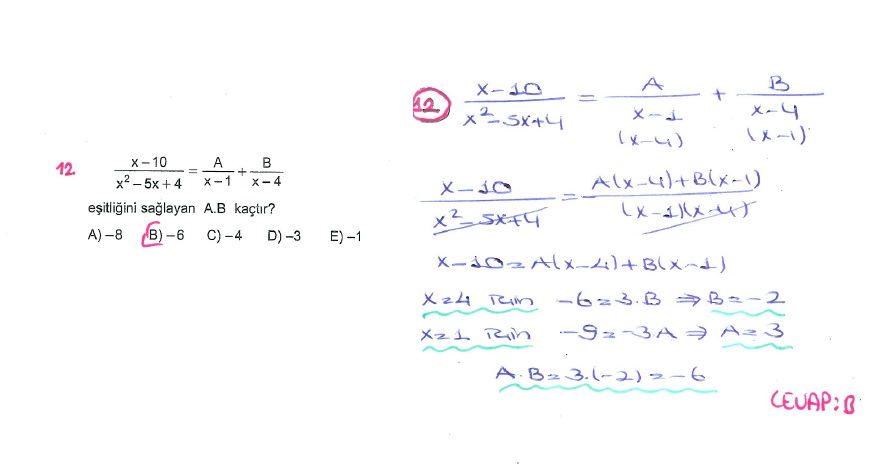 12
x – 10 / x² – 5x + 4 = A / x – 1 + B / x – 4
eşitliğini sağlayan A.B kaçtır?
A) –8 B) –6 C) –4 D) –3 E) –1
12 x – 10 / x² – 5x + 4 = A / x – 1 (x – 4) + B / x – 4 (x – 1)
x – 10 / x² – 5x + 4 = A(x – 4) + B(x – 1) / (x – 1)(x – 4)
x – 10 = A(x – 4) + B(x – 1)
x = 4 için –6 = 3.B ⇒ B = –2
x = 1 için –9 = –3A ⇒ A = 3
A.B = 3.(–2) = –6
CEVAP: B